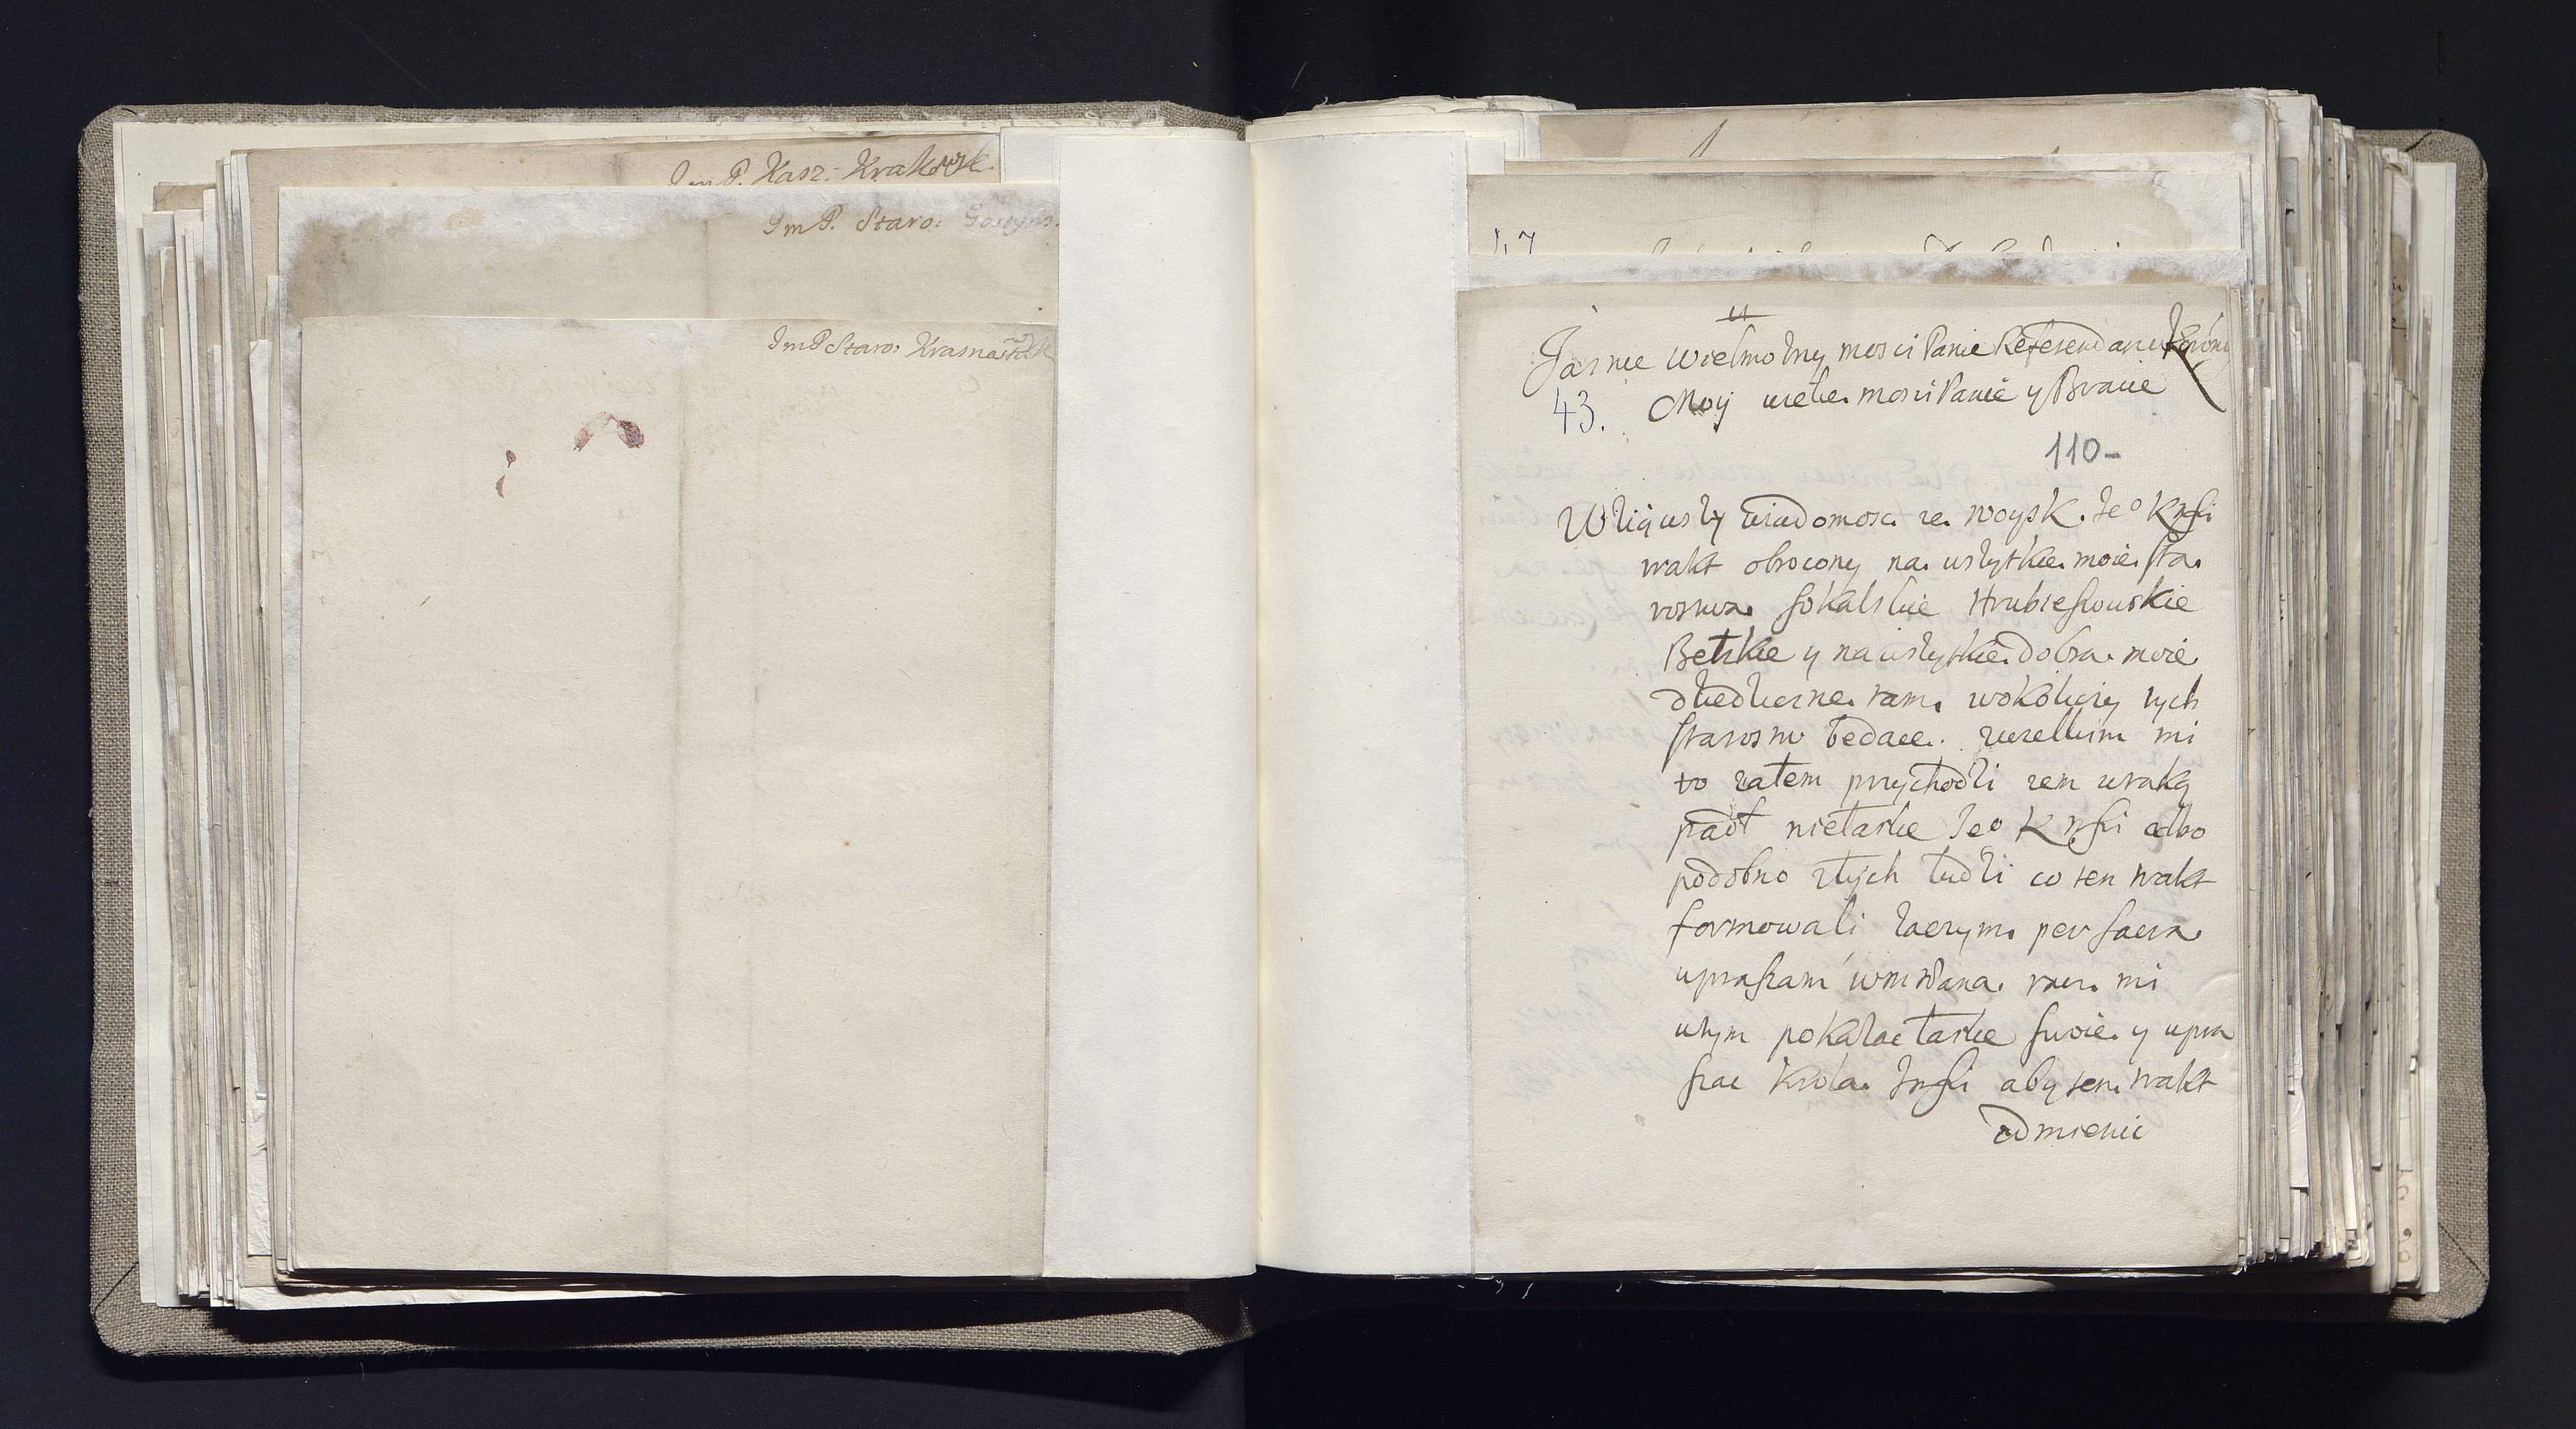 Im P. Kasz: Krakowsk.
Im P. Staro: Gostyns.
Im P Staro: Krasnostk
47
Jasnie Wielmozny mosci Panie Referendariu Koronny
43. Moy wielce mosci Panie y Bracie
110-
Wziąwszy wiadomosc ze woysk Jeo Kmsci
trakt obrocony na wszytkie moie sta
rostwa Sokalskie Hrubieszowskie
Bełskie y na wszytkie dobra moie
dziedziczne tam wokolicy tych
starostw będące. zwielkim mi
to zalem przychodzi zem wtaką
padł niełaske Jeo K msci albo
podobno złych ludzi co ten trakt
formowali zaczym per sacra
upraszam wm Pana racz mi
wtym pokazac łaske swoie y upra
szac Krola Jmsci aby ten trakt
odmienic